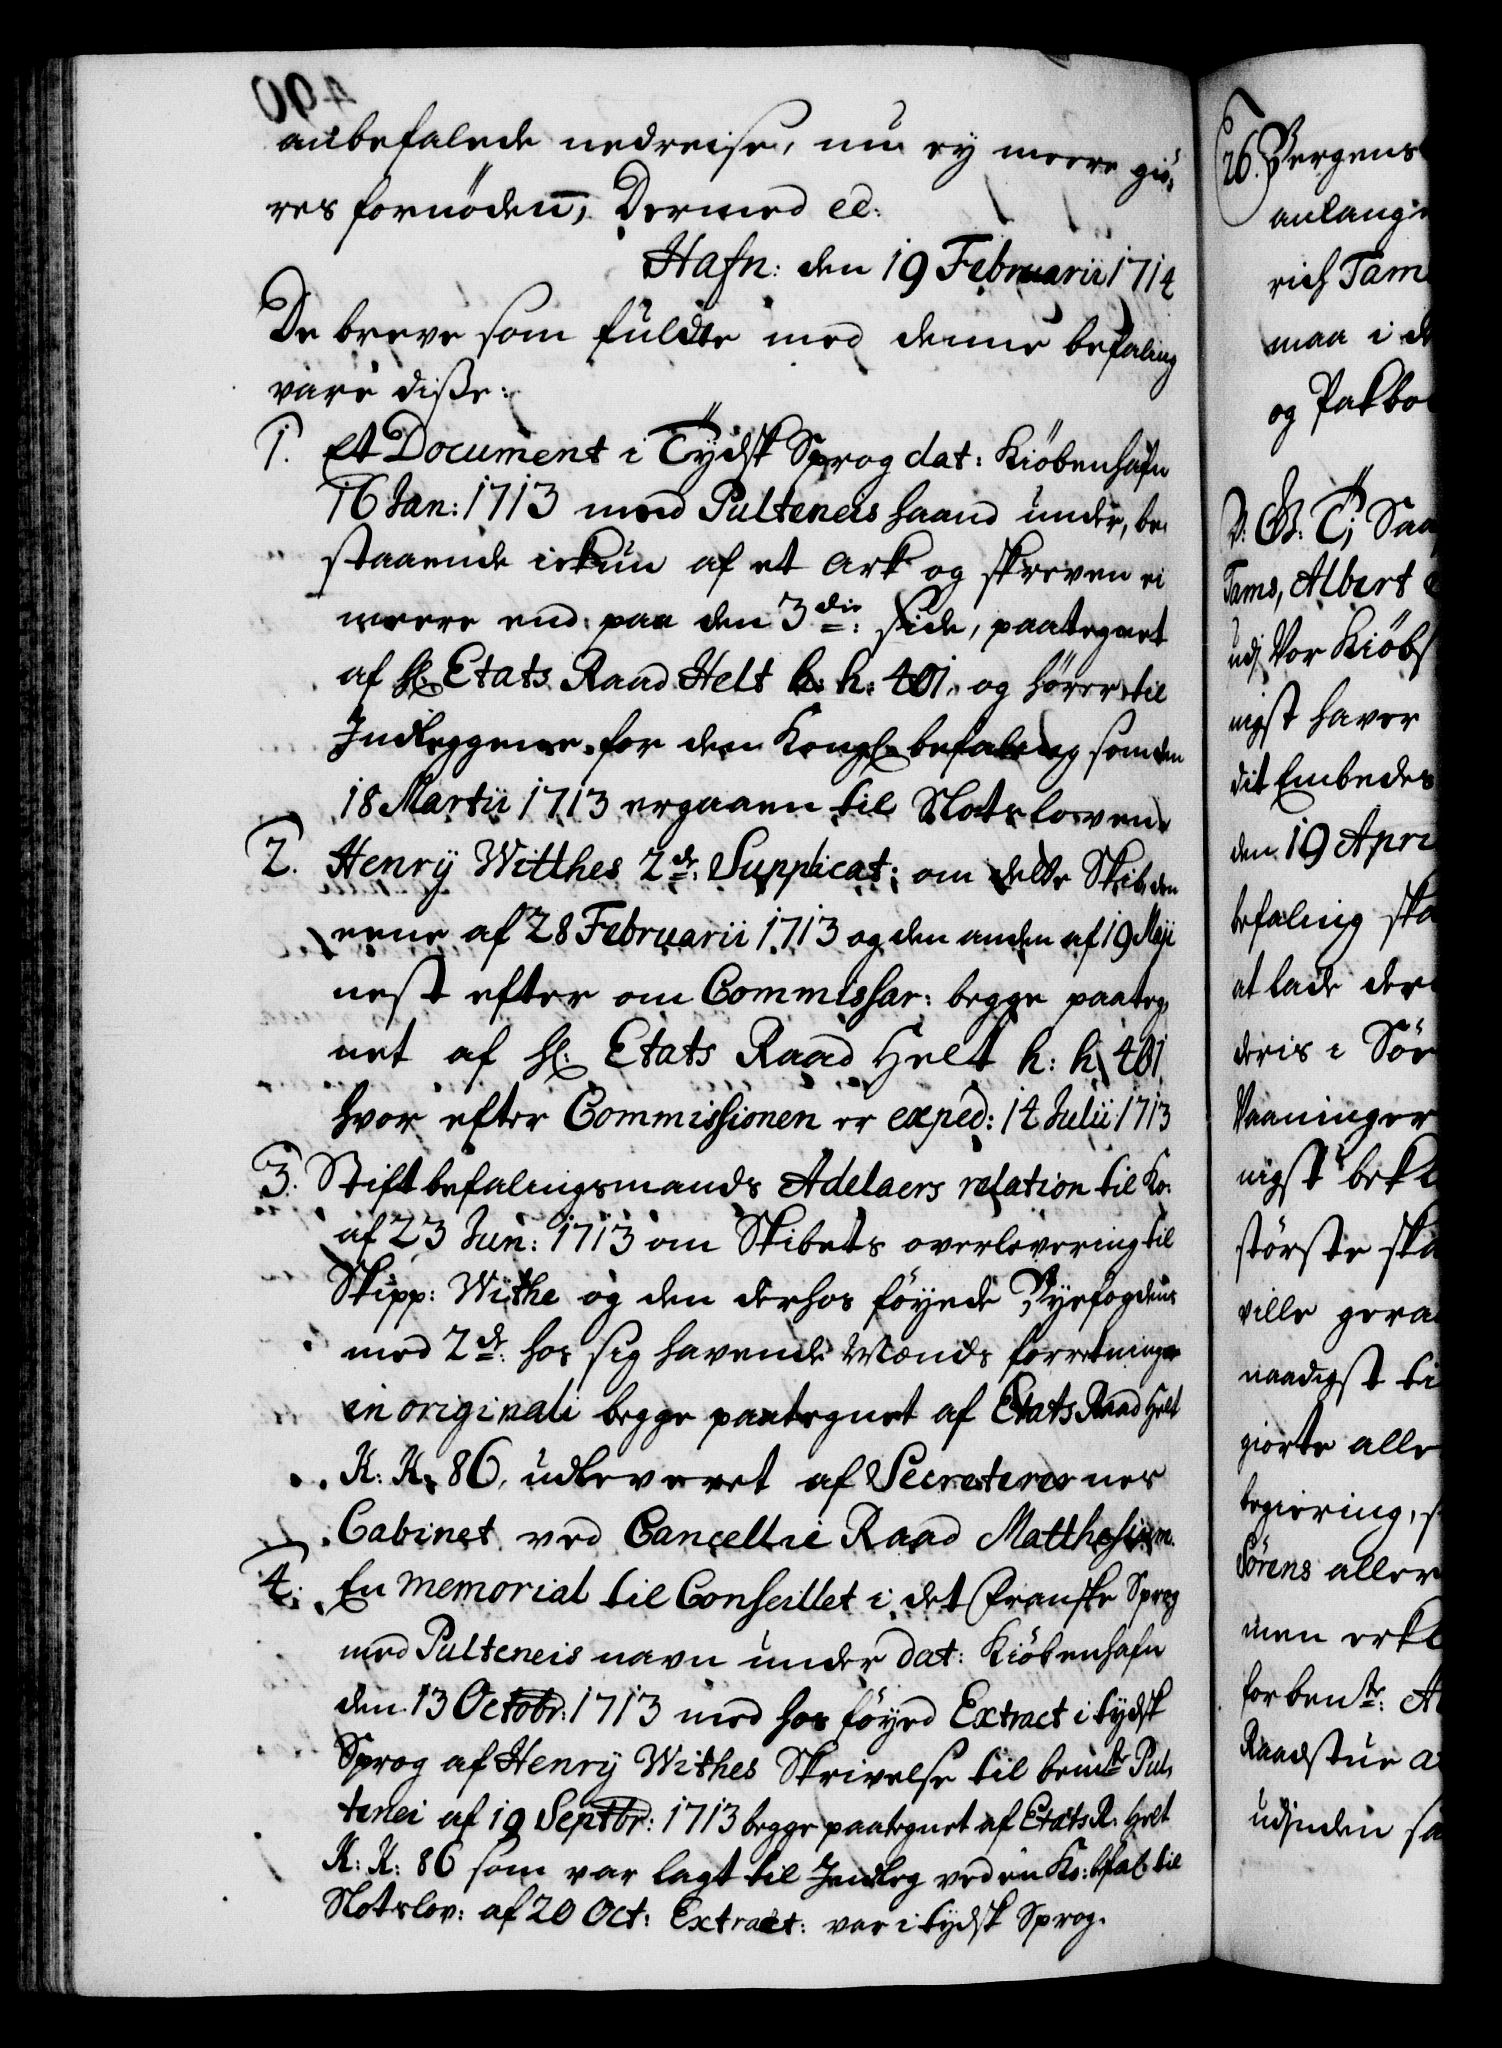 490
anbefalede nedreise, nu ey meere giö,
res fornöden, Dermed ec:
Hafn: den 19 Februarii 1714
De breve som fuldte med denne befaling
vare disse:
1. Et Document i Tydsk Sprog dat: Kiöbenhafn
16 Jan: 1713 med Pulteneis haand under, be,
staaende ickun af et Ark og skreven ei
meere end paa den 3die: side, paategnet
af hl: Etats Raad Helt h: h: 401. og hörer til
Indleggene for den Kongl: befaling som den
18 Martii 1713 ergaaen til Slotsloven
2. Henrÿ Witthes 2de: Supplicat: om dette Skib, den
eene af 28 Februarii 1713 og den anden af 19 Maji
nest efter om Commissar: begge paateg,
net af hl: Etats Raad Helt h: h: 401
hvor efter Commissionen er exped: 14 Julii 1713
3. Stiftbefalingsmands Adelaers relation til Ko:
af 23 Jun: 1713 om Skibets overlevering til
Skipp: Withe og den derhos föyede Byefogdens
med 2de: hos sig havende Mænds forretninger
in originali begge paategnet af Etats Raad Helt
K: K: 86, udleveret af Secreterernes
Cabinet ved Cancellie Raad Matthesium.
4. En memorial til Conseillet i det Franske Sprog
med Pulteneis navn under dat: Kiöbenhafn
den 13 Octobr: 1713 med hos föyed Extract i tydsk
Sprog af Henrÿ Withes Skrivelse til bemte Pul,
tenei af 19 Septbr: 1713 begge paategnet af Etats R: Helt
K: K: 86 som var lagt til Indleg ved en Ko: befal: til
Slotslov: af 20 Oct: Extract: var i tydsk Sprog.
26. Bergens
anlang
rich Tam
maa i d
og Pakbo
V: G: T; Saa
Tams, Albert
udj Vor Kiöbs
nigst haver
dit Embedes
den 19 Apri
befaling ska
at lade der
deris i Sör
Vaaninger
nigst bekl
störste ska
ville gera
naadigst ti
giorte alle
begiering, s
Sörens aller
men erkl
forbente: A
Raadstue a
udjnden sa